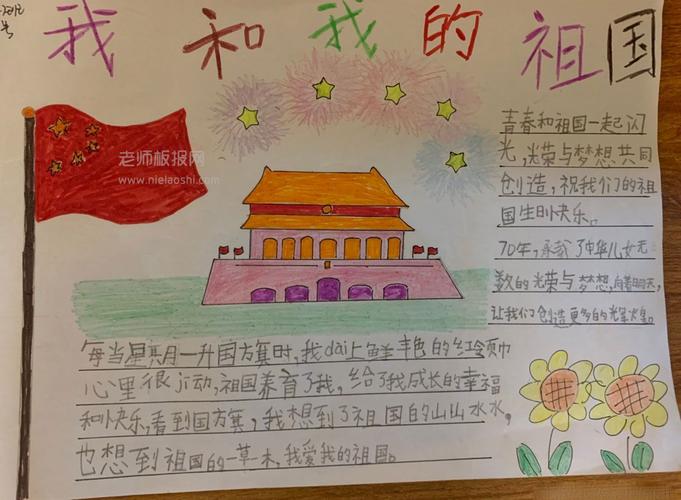 我和我的祖国
老师板报网
www.nielaoshi.com
青春和祖国一起闪
光,光荣与梦想共同
创造,祝我们的祖
国生日快乐。
70年,承载了中华儿女无
数的光荣与梦想,向着明天,
让我们创造更多的光辉
每当星期一升国方旗时,我dai上鲜丰色的红令巾
心里很ji动,祖国养育了我,给了我成长的幸福
和快乐,看到国方旗,我想到了祖国的山山水水,
也想到祖国的一草木,我爱我的祖国。